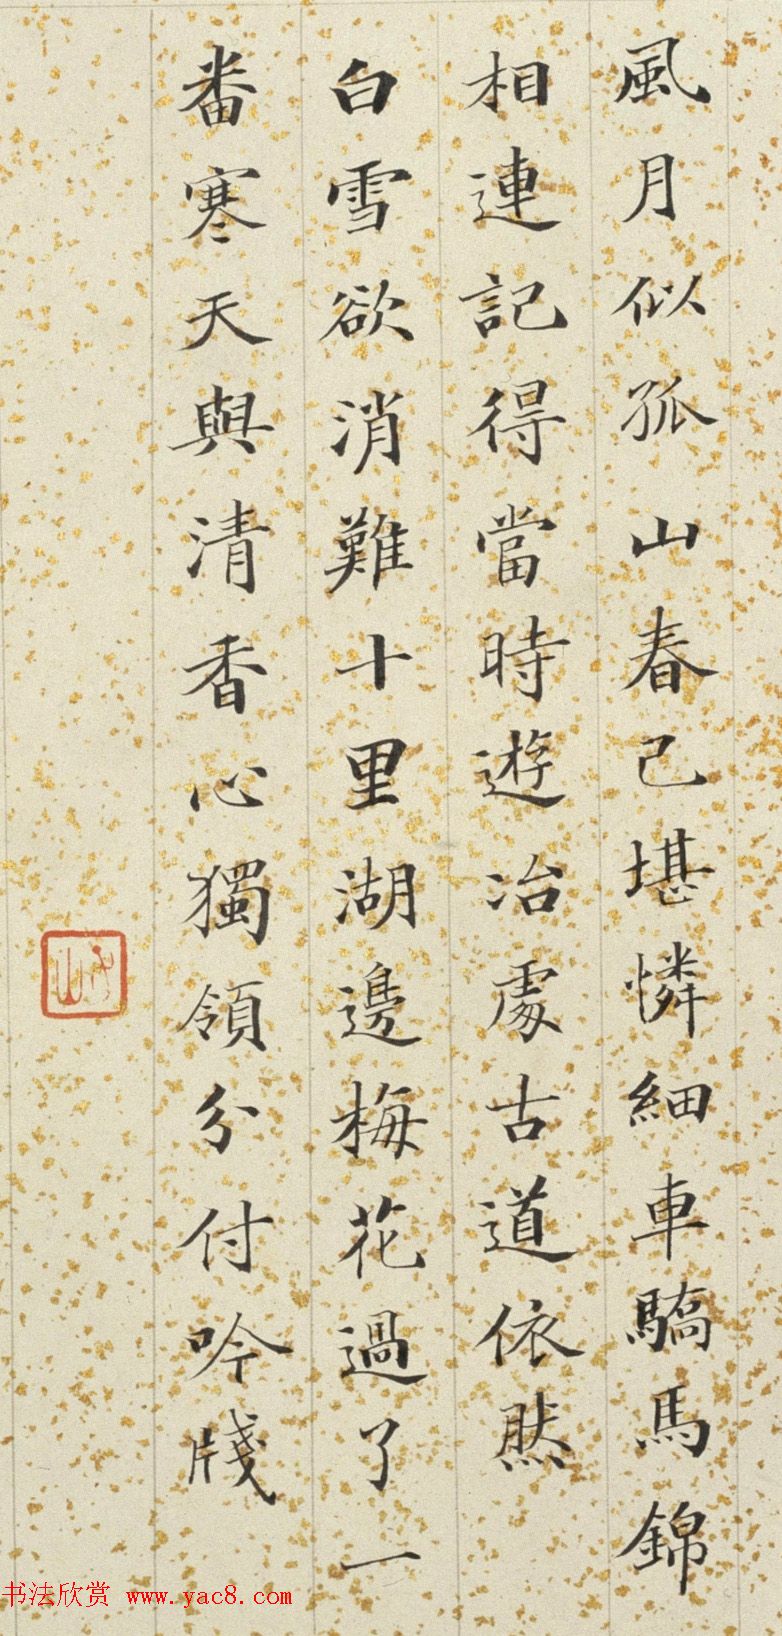 風月似孤山春己堪憐細車驕馬錦
相連記得當時遊冶處古道依然
白雪欲消難十里湖邊梅花過了一
番寒天與清香心獨領分付吟牋
书法欣赏 www.yac8.com